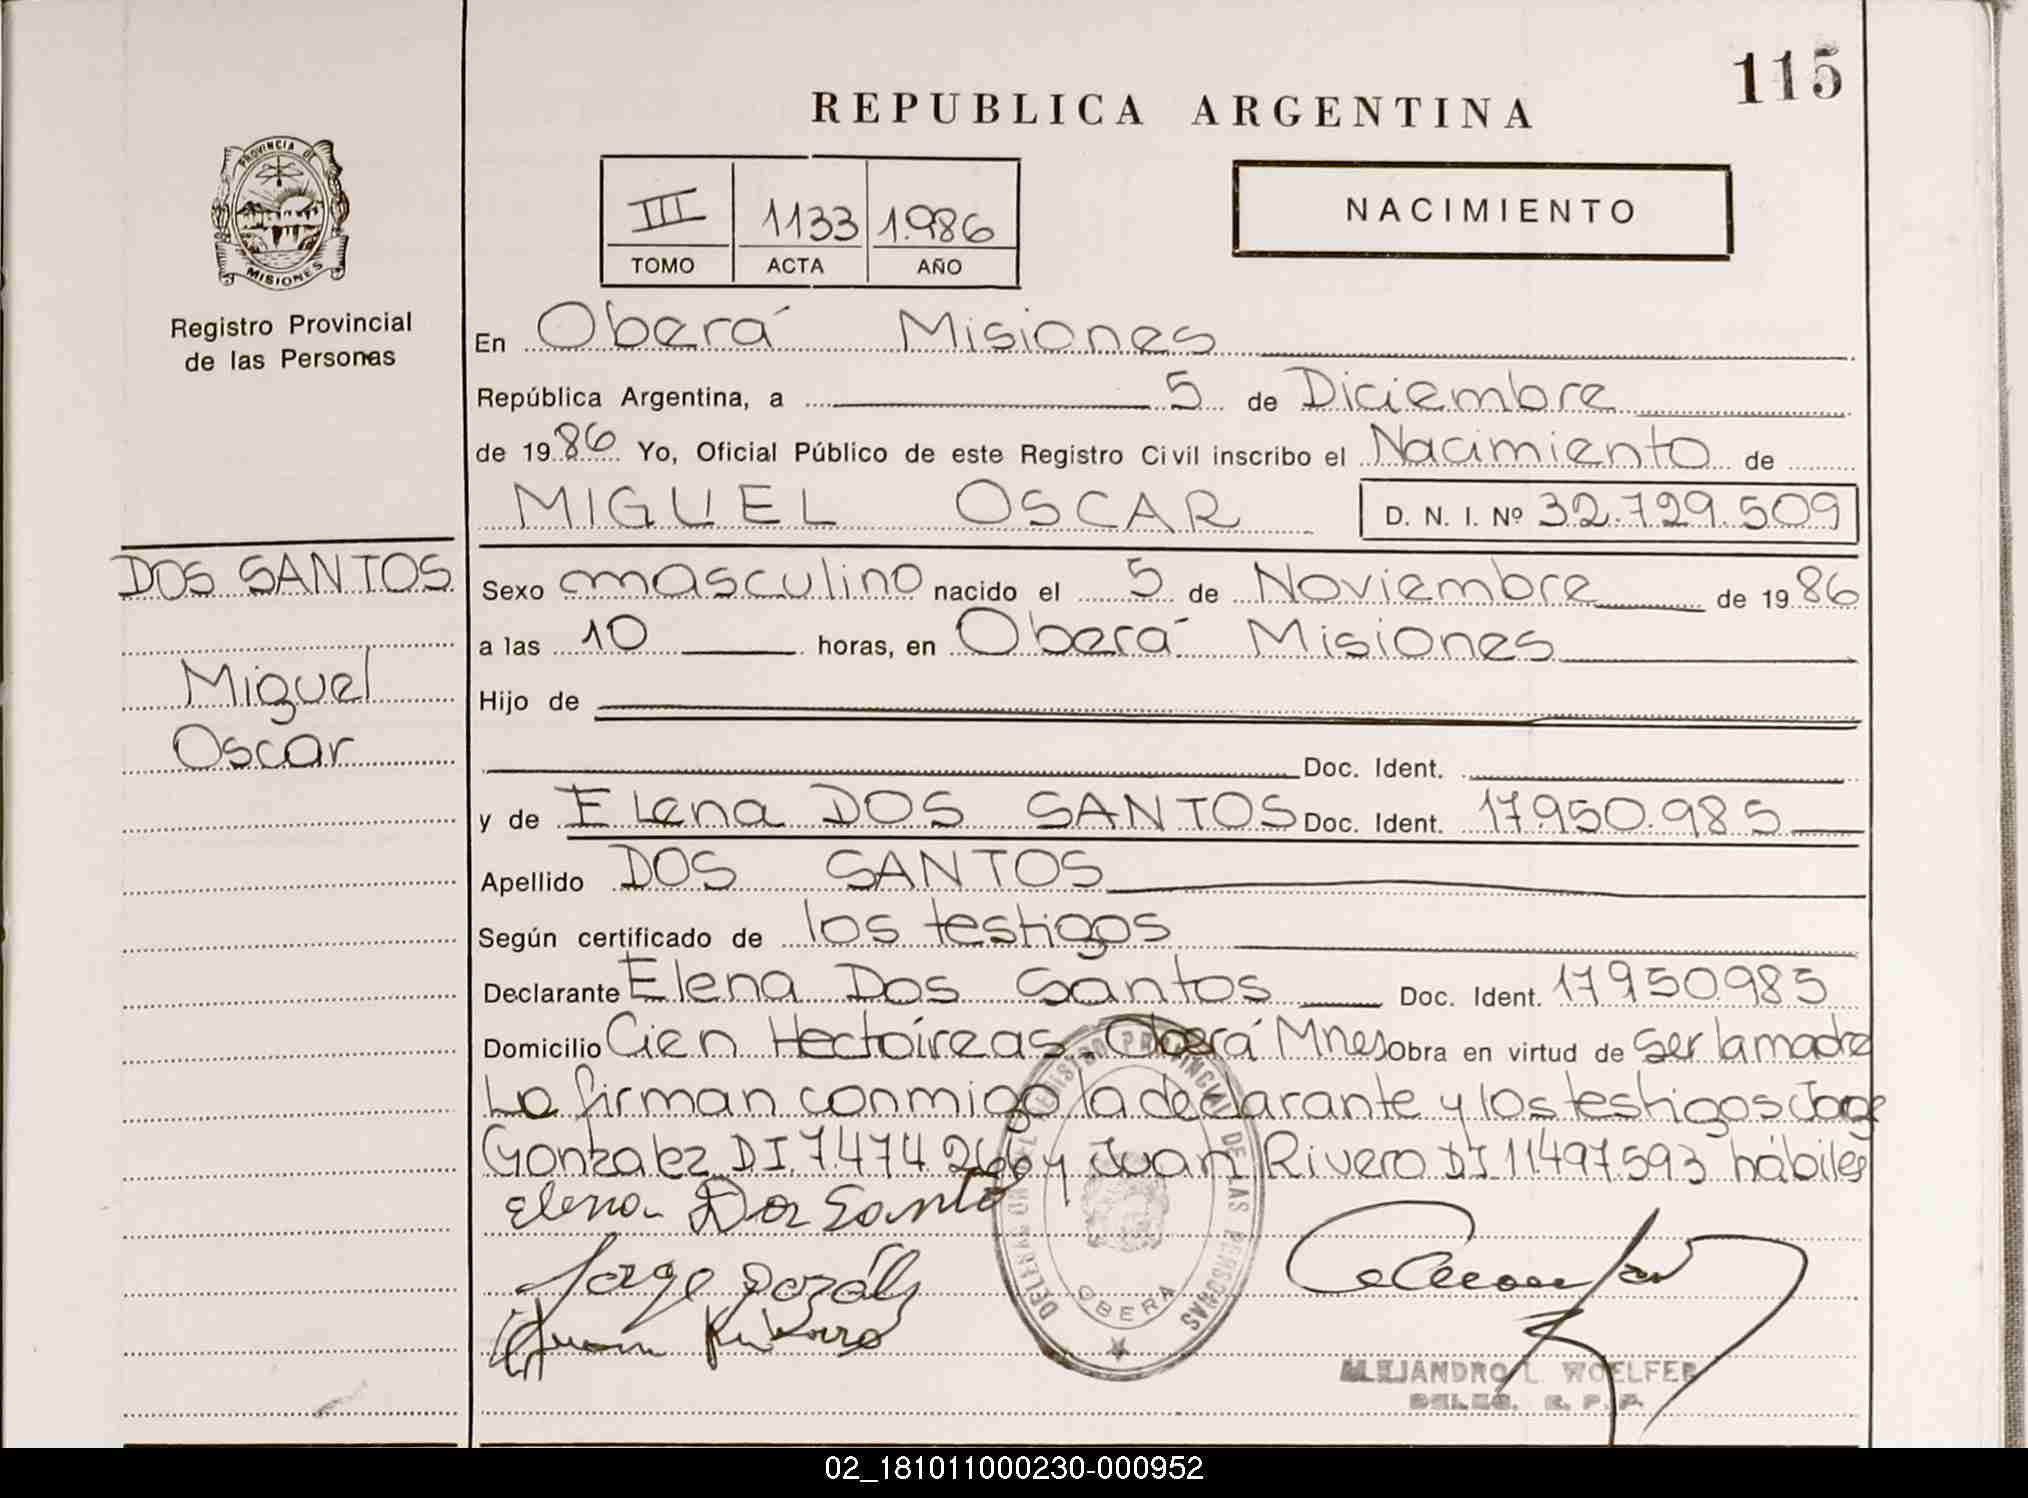 115
REPUBLICA ARGENTINA
PROVINCIA DE
MISIONES
Registro Provincial
de las Personas
III 1133 1.986
TOMO ACTA AÑO
NACIMIENTO
En Oberá Misiones
República Argentina, a 5 de Diciembre
de 1986 Yo, Oficial Público de este Registro Civil inscribo el Nacimiento de
MIGUEL OSCAR D. N. I. Nº 32.729.509
DOS SANTOS
Miguel
Oscar
Sexo masculino nacido el 5 de Noviembre de 1986
a las 10 horas, en Oberá Misiones
Hijo de
Doc. Ident.
y de Elena DOS SANTOS Doc. Ident. 17.950.985
Apellido DOS SANTOS
Según certificado de los testigos
Declarante Elena Dos Santos Doc. Ident. 17.950.985
Domicilio Cien Hectáreas. Oberá Mnes Obra en virtud de ser la madre
La firman conmigo la declarante y los testigos Jorge
Gonzalez DI. 7.474.266 y Juan Rivero DI. 11.497.593 hábiles
Elena Dos Santo
Jorge
Juan
DELEGACION DEL REGISTRO PROVINCIAL DE LAS PERSONAS
OBERA
ALEJANDRO L. WOELFER
DELEG. R. P. P.
02_181011000230-000952